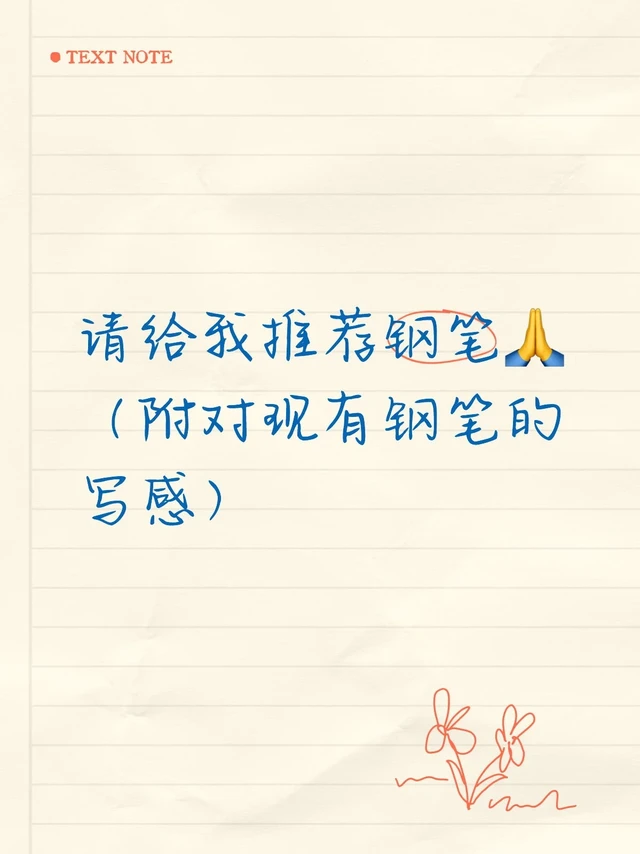 TEXT NOTE
请给我推荐钢笔🙏
（附对现有钢笔的
写感）